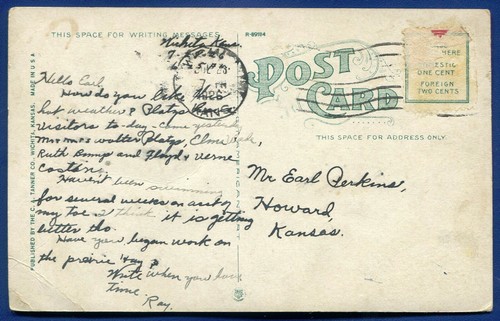 THIS SPACE FOR WRITING MESSAGES
R-89184
POST CARD
HERE
DOMESTIC
ONE CENT
FOREIGN
TWO CENTS
THIS SPACE FOR ADDRESS ONLY.
PUBLISHED BY THE C. TANNER CO., WICHITA, KANSAS. MADE IN U S A
Wichita, Kans.
Hello Earl
How do you like this
hot weather?
visitors to-day. Came yesterday
Mr + Mrs Walter Platz, Elmer
Ruth and Floyd + Verne
Haven't been swimming
for several weeks on acct of
my toe. I think it is getting
better tho.
Have you began work on
the prairie hay?
Write when you have
time.
Ray.
Mr Earl Perkins,
Howard,
Kansas.